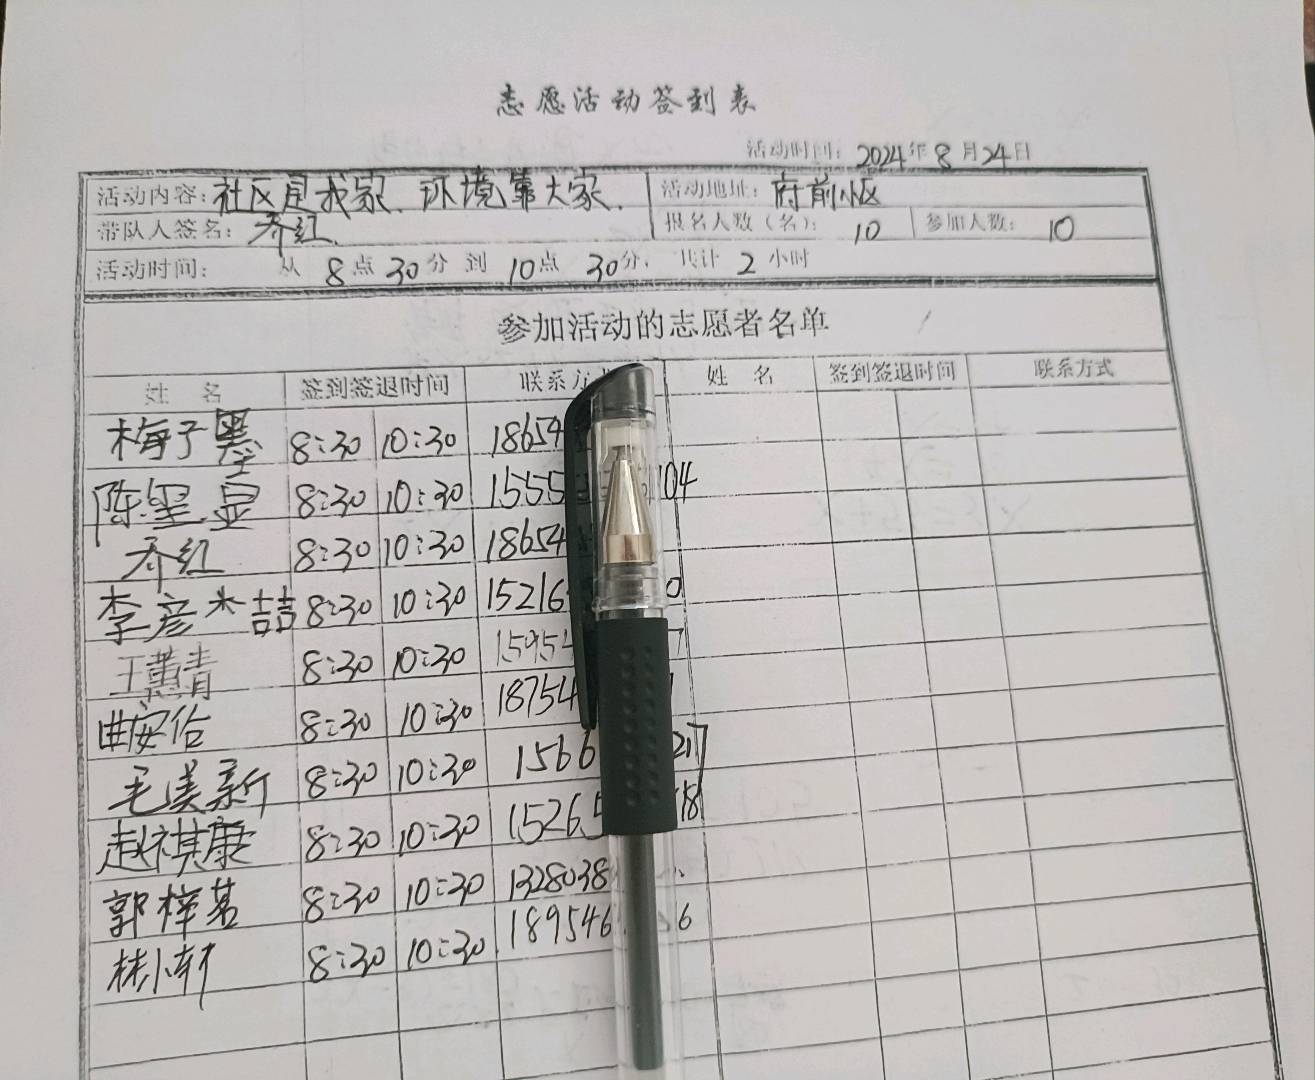 志愿活动签到表
活动时间：2024年8月24日
活动内容：社区是我家、环境靠大家． 活动地址：府前小区
带队人签名：乔红． 报名人数（名）：10 参加人数：10
活动时间：从 8点30分 到 10点 30分，共计 2 小时
参加活动的志愿者名单
姓 名 签到签退时间 联系方 姓 名 签到签退时间 联系方式
梅子墨 8:30 10:30 18654
陈 8:30 10:30 1555 104
乔红 8:30 10:30 18654
李彦喆 8:30 10:30 15216 0
王薰青 8:30 10:30 15954 7
曲 8:30 10:30 18754 1
毛美新 8:30 10:30 1566 217
赵祺康 8:30 10:30 15265 18
郭梓茗 8:30 10:30 1328038
林小轩 8:30 10:30 189546 6